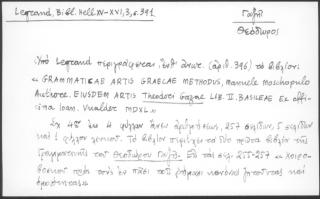 Legrand, Bibl. Hell. XV-XVI, 3, σ. 391
Γαζῆς
Θεόδωρος
Ὑπὸ Legrand περιγράφεται ἐνθ' ἀνωτ. (ἀρ. 396) τὸ βιβλίον:
« GRAMMATICAE ARTIS GRAECAE METHODUS, Manuele Moschopulo
Authore. EIUSDEM ARTIS Theodori Gazae LIB. II. BASILEAE Ex offi-
cina Ioan. Vualder MDXL.»
4 φύλλα ἄνευ ἀριθμήσεως, 257 σελίδων, 5 σελίδων
καὶ 1 φύλλον λευκοῦ. Τὸ βιβλίον περιέχει τὰ δύο πρῶτα βιβλία τῆς
Γραμματικῆς τοῦ Θεοδώρου Γαζῆ. σελ. 255-257
καὶ